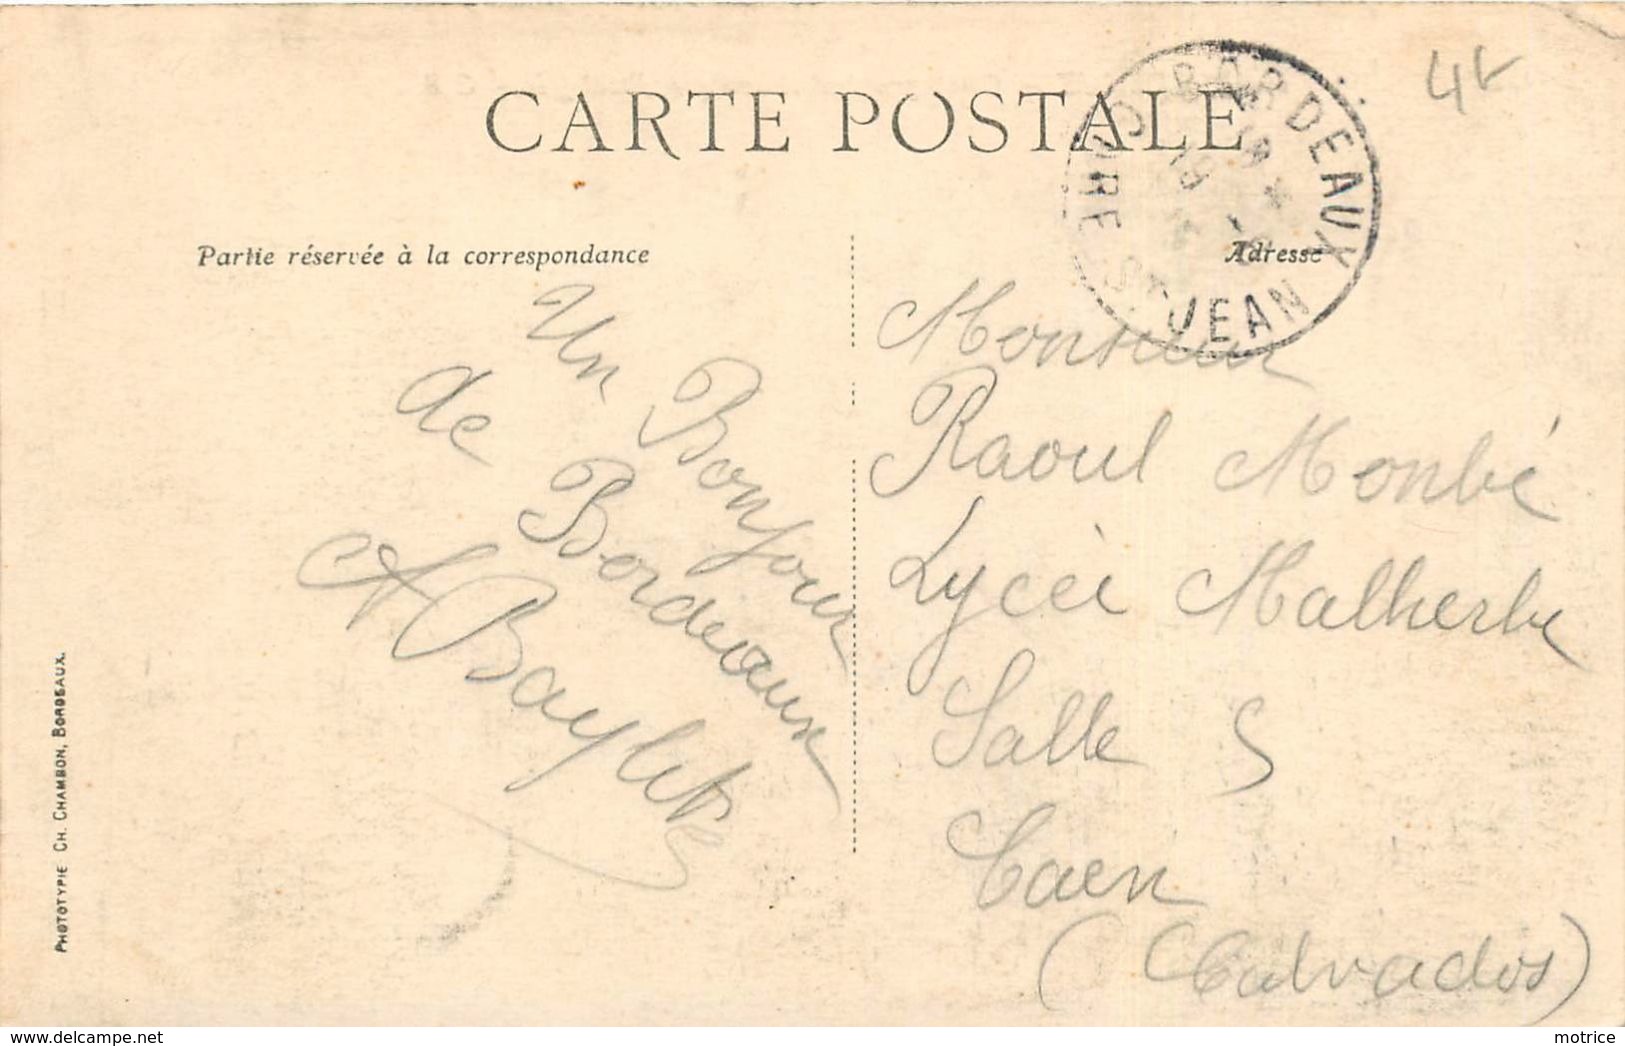 CARTE POSTALE
4f
BORDEAUX
ST JEAN
Partie réservée à la correspondance
Adresse
Un Bonjour
de Bordeaux
A Baylet
Monsieur
Raoul Monbé
Lycée Malherbe
Salle S
Caen
(Calvados)
PHOTOTYPIE CH. CHAMBON, BORDEAUX.
www.delcampe.net
motrice